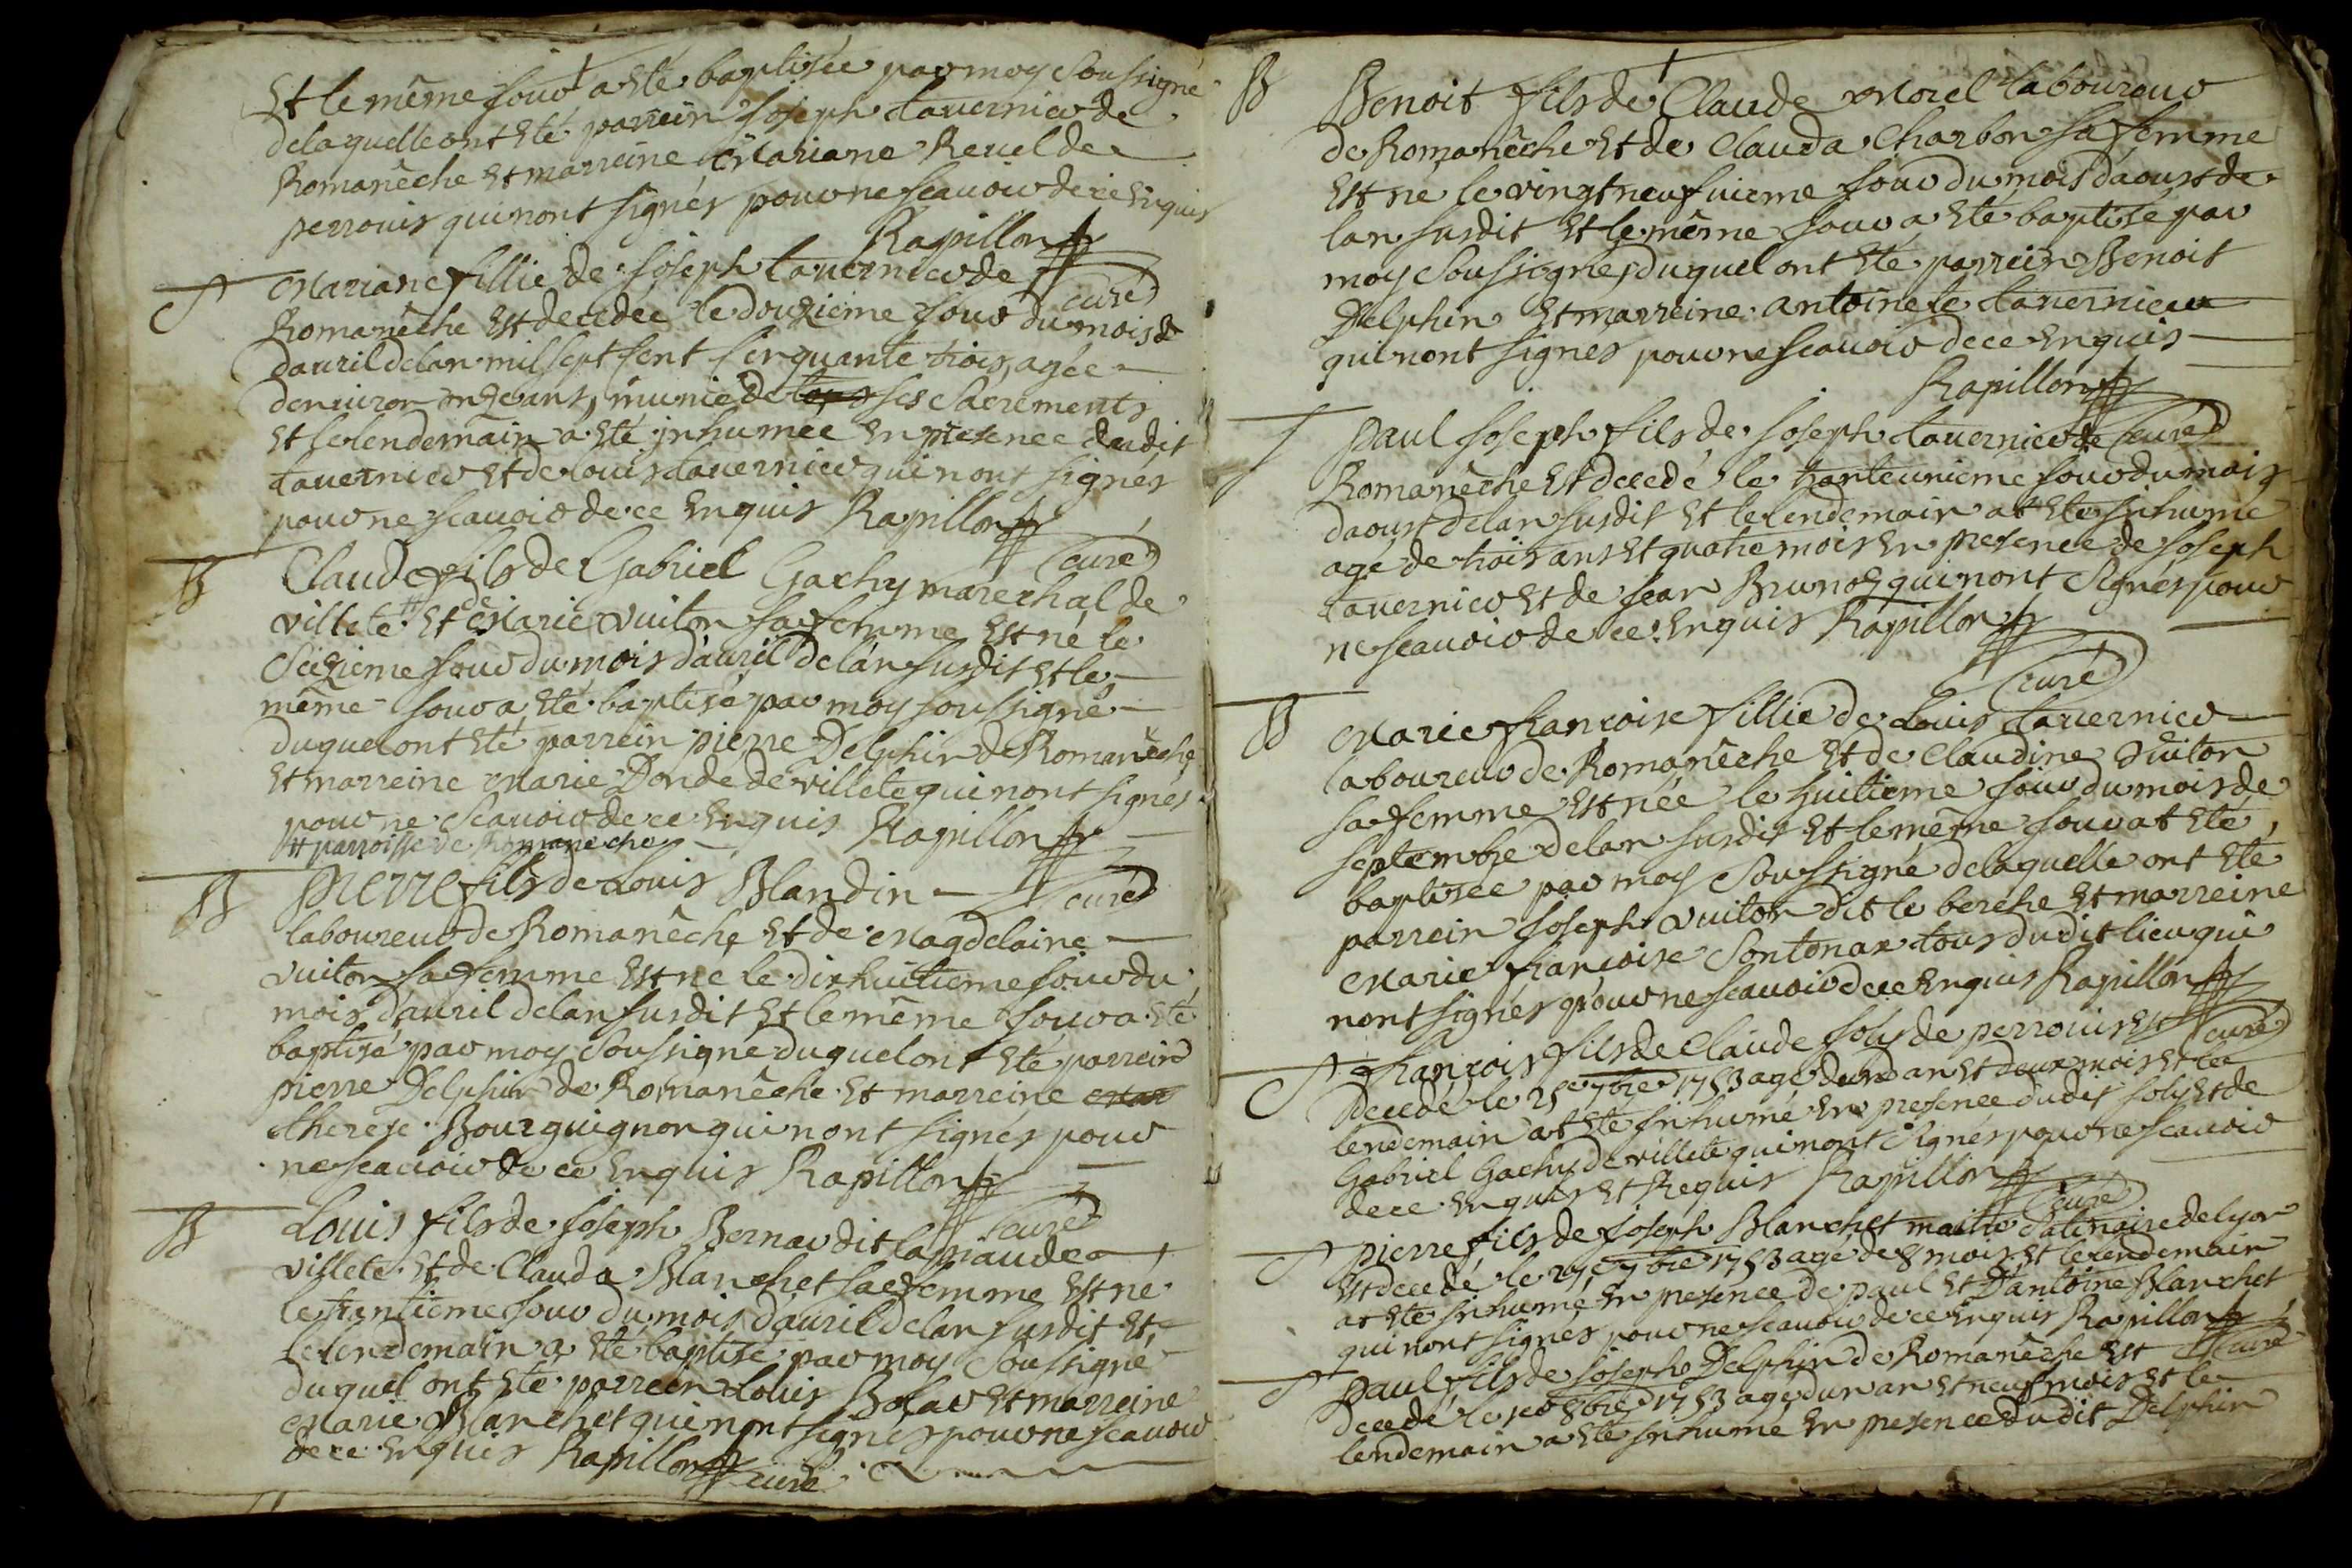 Et le même jour a eté baptisée par moy soussigné
de laquelle ont eté parrein joseph tavernier de
Romanêche et marreine Mariane Revel de
perrouis qui n'ont signés pour ne scavoir de ce enquis
Rapillon
curé
S Mariane fillie de joseph tavernier de
Romanêche est decedée le douzieme jour du mois
davril de lan mil sept sent sinquante trois, agée
denviron onze ans, munie de tous ses sacrements
et le lendemain a eté inhumée en presence dudit
tavernier et de louis tavernier qui n'ont signés
pour ne scavoir de ce enquis Rapillon
curé
B Claude fils de Gabriel Gachy marechal de
villete # et de Marie vuiton sa femme est né le
seizieme jour du mois davril de lan susdit et le
même jour a eté baptisé par moy soussigné
duquel ont eté parrein pierre Delphin de Romanêche
et marreine Marie Donde de villete qui n'ont signés
pour ne scavoir de ce enquis Rapillon
# parroisse de Romaneche
curé
B pierre fils de Louis Blandin
laboureur de Romanêche et de Magdelaine
vuiton sa femme est né le dixhuitieme jour du
mois davril de lan susdit et le même jour a eté
baptisé par moy soussigné duquel ont eté parrein
pierre Delphin de Romanêche et marreine
therese Bourguignon qui n'ont signés pour
ne scavoir de ce enquis Rapillon
curé
B Louis fils de joseph Bernar dit de
villete et de Clauda Blanchet sa femme est né
le trentieme jour du mois davril de lan susdit et
le lendemain a eté baptisé par moy soussigné
duquel ont eté parrein Louis et marreine
Marie Blanchet qui n'ont signés pour ne scavoir
de ce enquis Rapillon curé
B Benoit fils de Claude Morel laboureur
de Romanêche et de Clauda Charbon sa femme
est né le vingt neufvieme jour du mois daoust de
lan susdit et le même jour a eté baptisé par
moy soussigné, duquel ont eté parrein Benoit
Delphin et marreine antoinete tavernier
qui n'ont signés pour ne scavoir de ce enquis
Rapillon
curé
S paul joseph fils de joseph tavernier de
Romanêche est decedé le tranteunieme jour du mois
daoust de lan susdit et le lendemain at eté inhumé
agé de trois ans et quatre mois en presence de joseph
tavernier et de jean qui n'ont signés pour
ne scavoir de ce enquis Rapillon
curé
B Marie francoise fillie de Louis tavernier
laboureur de Romanêche et de Claudine vuiton
sa femme est née le huitieme jour du mois de
septembre de lan susdit et le même jour at eté
baptisée par moy soussigné de laquelle ont eté
parrein joseph vuiton dit le berche et marreine
Marie francoise Sontonax tous dudit lieu qui
n'ont signés pour ne scavoir de ce enquis Rapillon
curé
S francois fils de Claude joly de perrouis est
decedé le 25e 7bre 1753 agé d'un an et deux mois et le
lendemain at eté inhumé en presence dudit joly et de
Gabriel Gachy de villete qui n'ont signés pour ne scavoir
de ce enquis et Requis Rapillon
curé
S pierre fils de joseph Blanchet maitre de lyon
est decedé le 7bre 1753 agé de 8 mois et le lendemain
at eté inhumé en presence de paul et Dantoine Blanchet
qui n'ont signés pour ne scavoir de ce enquis Rapillon
curé
S paul fils de joseph Delphin de Romanêche est
decedé le 8bre 1753 agé dun an et neuf mois et le
lendemain a eté inhumé en presence dudit Delphin